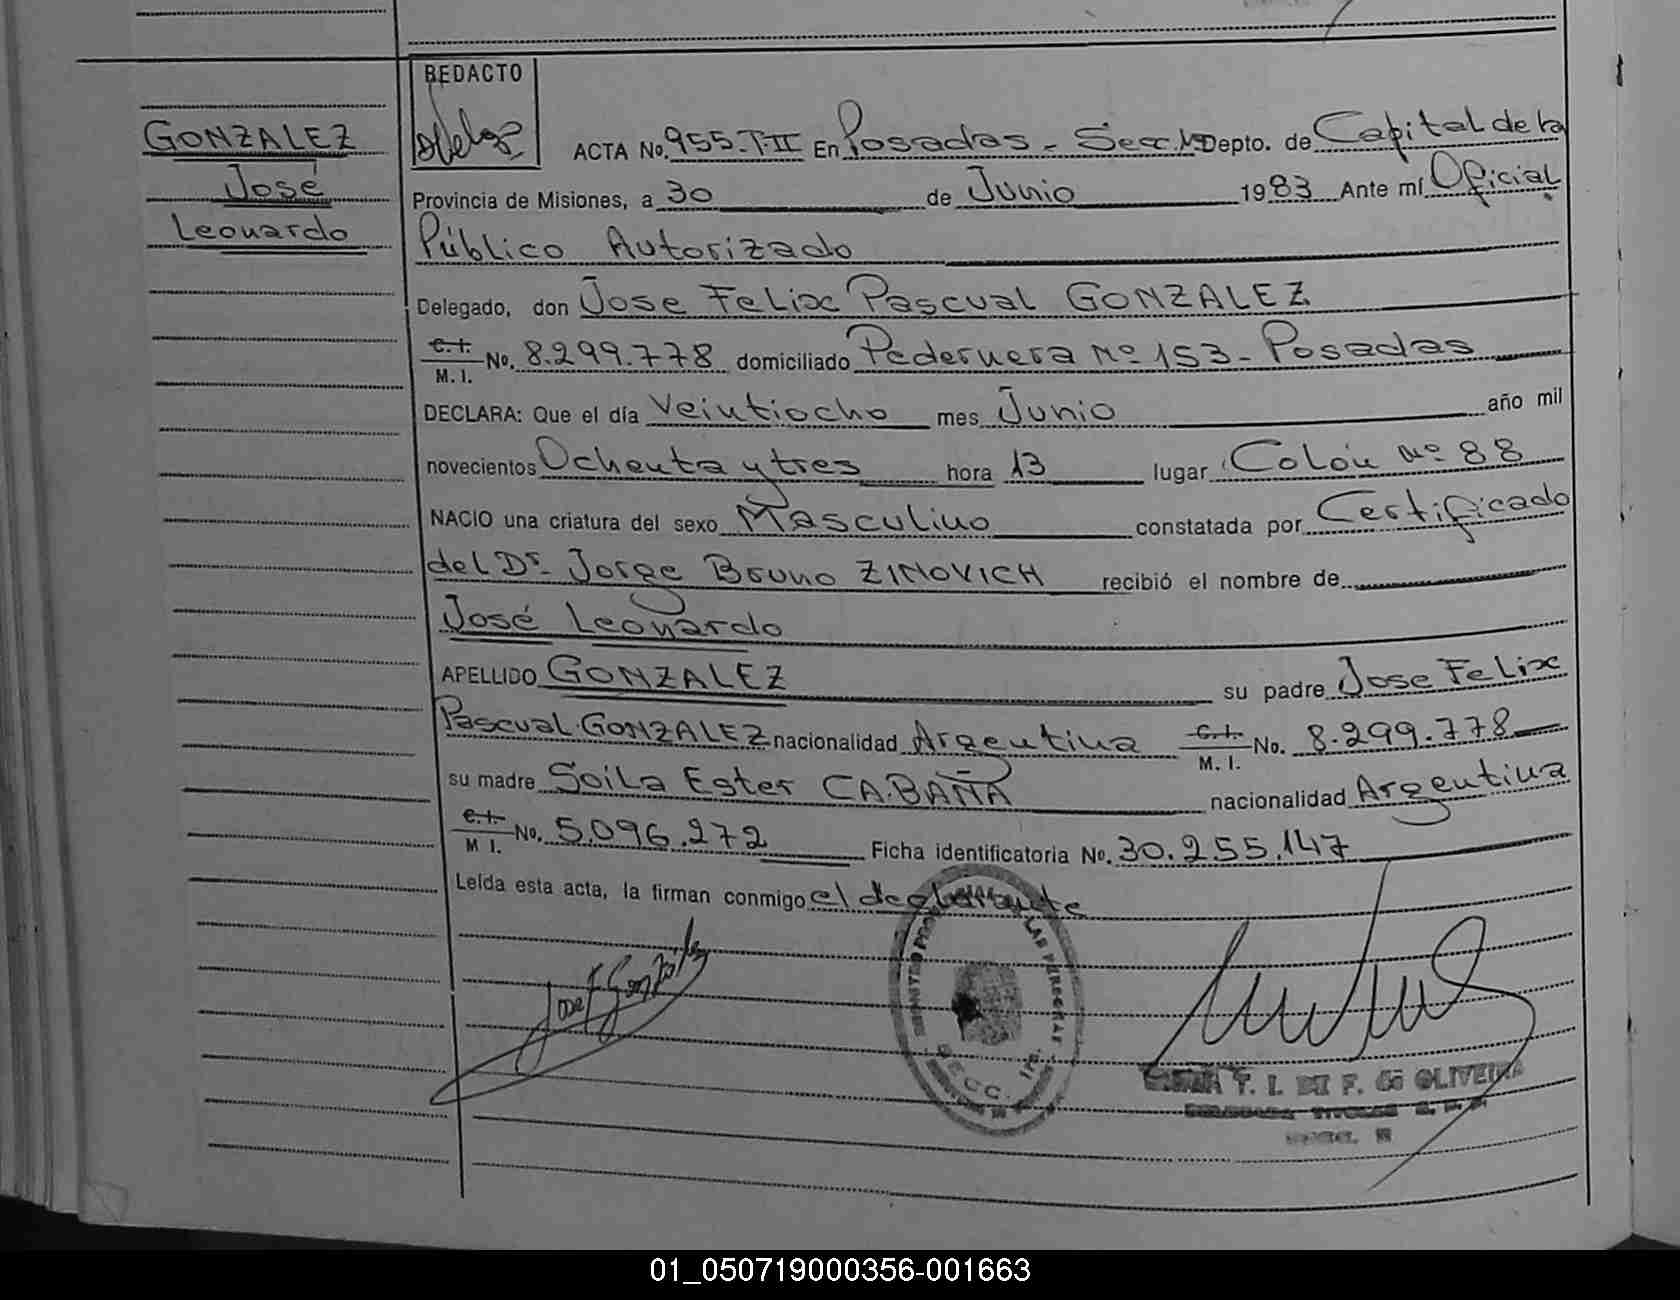 REDACTO
GONZALEZ
José
Leonardo
ACTA No. 955.T-II En Posadas - Secc 1ª Depto. de Capital de la
Provincia de Misiones, a 30 de Junio 1983 Ante mí Oficial
Público Autorizado
Delegado, don Jose Felix Pascual GONZALEZ
C.I. M.I. No. 8.299.778 domiciliado Pedernera Nº 153 - Posadas
DECLARA: Que el día Veintiocho mes Junio año mil
novecientos Ochenta y tres hora 13 lugar Colón Nº 88
NACIO una criatura del sexo Masculino constatada por Certificado
del Dr. Jorge Bruno ZINOVICH recibió el nombre de
José Leonardo
APELLIDO GONZALEZ su padre Jose Felix
Pascual GONZALEZ nacionalidad Argentina C.I. M.I. No. 8.299.778
su madre Soila Ester CABAÑA nacionalidad Argentina
C.I. M I. No. 5.096.272 Ficha identificatoria No. 30.255.147
Leída esta acta, la firman conmigo el declarante
Jose F González
SECC. 1ra.
T. I. DE F. de OLIVEIRA
01_050719000356-001663